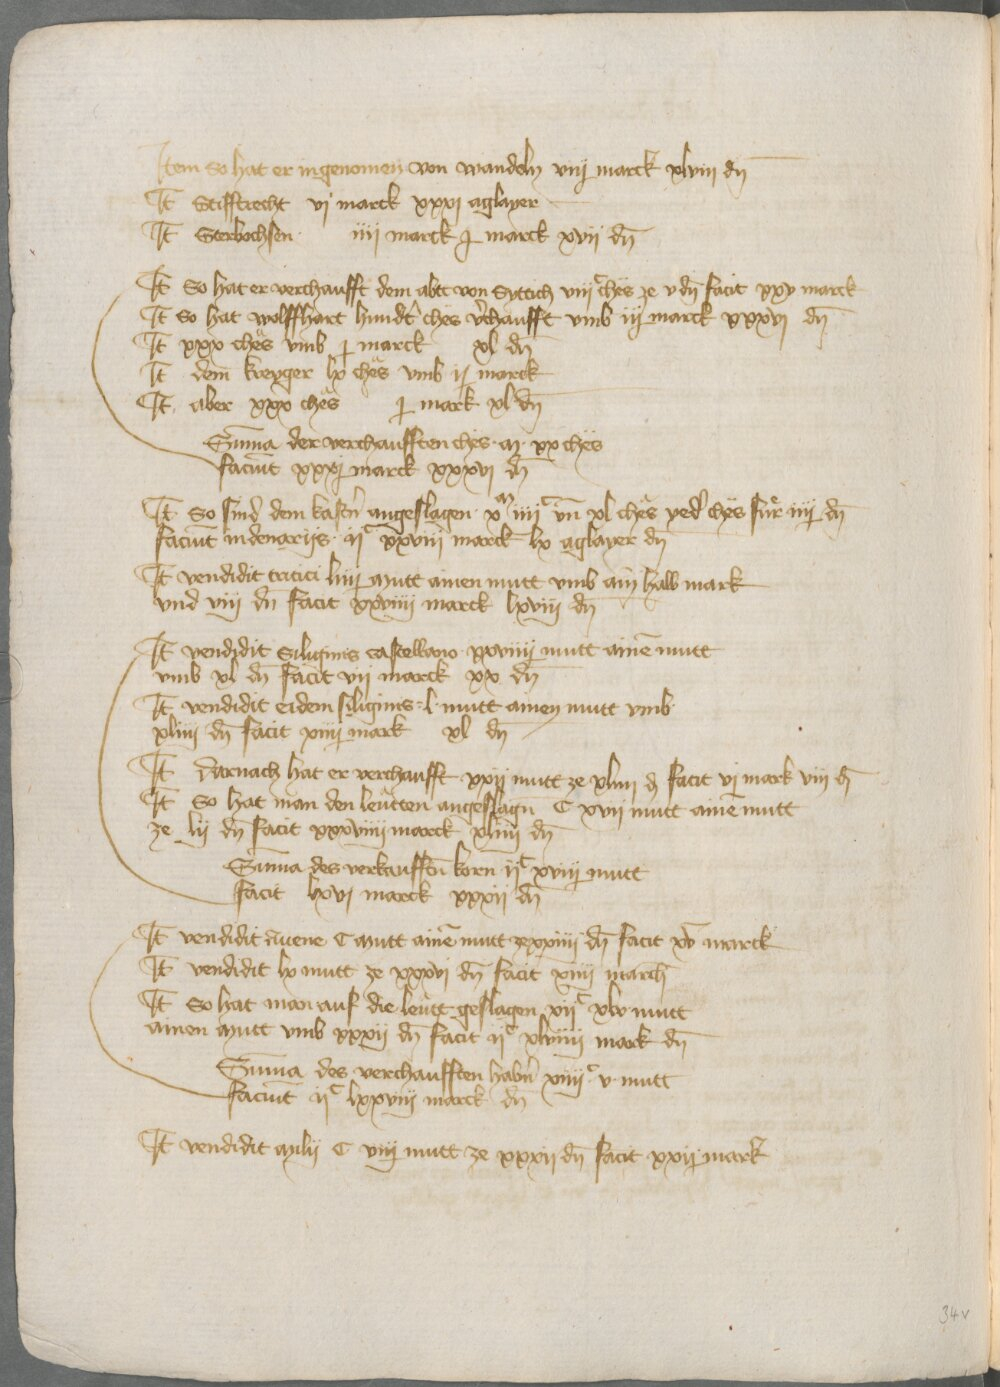 Item So hat er ingenomen von wandeln viij marck xlviii dn̄
It̄ Stifftrecht vi marck xxxi aglayer
It̄ Sterbochsen iiij marck j marck xvii dn̄
It̄ So hat er verchaufft dem abbt von Syttich viiiᶜ ches ze v dn̄ facit xxv marck
It̄ So hat wolffhart hundt ches v̄chaufft vmb iij marck xxxvi dn̄
It̄ xxx ches vmb j marck xl dn̄
It̄ dem kreyger lx ches vmb ij marck
It̄ aber xxx ches j mark xl dn̄
Sūma der verchaufften ches m xx ches
faciūt xxxj marck xxxvi dn̄
It̄ So sind dem kastn̄ angeslagen xᵐ iiiiᶜ vn̄ xl ches yed ches für iiij dn̄
faciūt in denarijs ijᶜ xxviii marck lx aglayer dn̄
It̄ vendidit tritici liiij mutt ainen mutt vmb ain halb mark
vnd viii dn̄ facit xxviiii marck lxviii dn̄
It̄ vendidit Siliginis castellano xxviiij mutt ainē mutt
vmb xl dn̄ facit vij marck xx dn̄
It̄ vendidit eidem siliginis l mutt ainen mutt vmb
xliiii dn̄ facit xiiij mark xl dn̄
It̄ darnach hat er verchaufft xxij mutt ze xliiii d facit vj mark viii dn̄
It̄ So hat man den leütten angeslagn̄ C xvii mutt ainē mutt
ze lij dn̄ facit xxxviiii marck xliiii dn̄
Sūma des verkaufftn̄ korn ijᶜ xviiij mutt
facit lxvj marck xxxii dn̄
It̄ vendidit auene C mutt ainē mutt ze xxiiii dn̄ facit xv marck
It̄ vendidit lx mutt ze xxxvi dn̄ facit xiiij march
It̄ So hat man auf die leütt geslagen xijᶜ xlv mutt
ainen mutt vmb xxxii dn̄ facit ijᶜ xlviiii mark dn̄
Sūma des verchaufften habn̄ xiiiiᶜ v mutt
faciūt ijᶜ lxxviii marck dn̄
It̄ vendidit milij C viiij mutt ze xxxii dn̄ facit xxij mark
34v